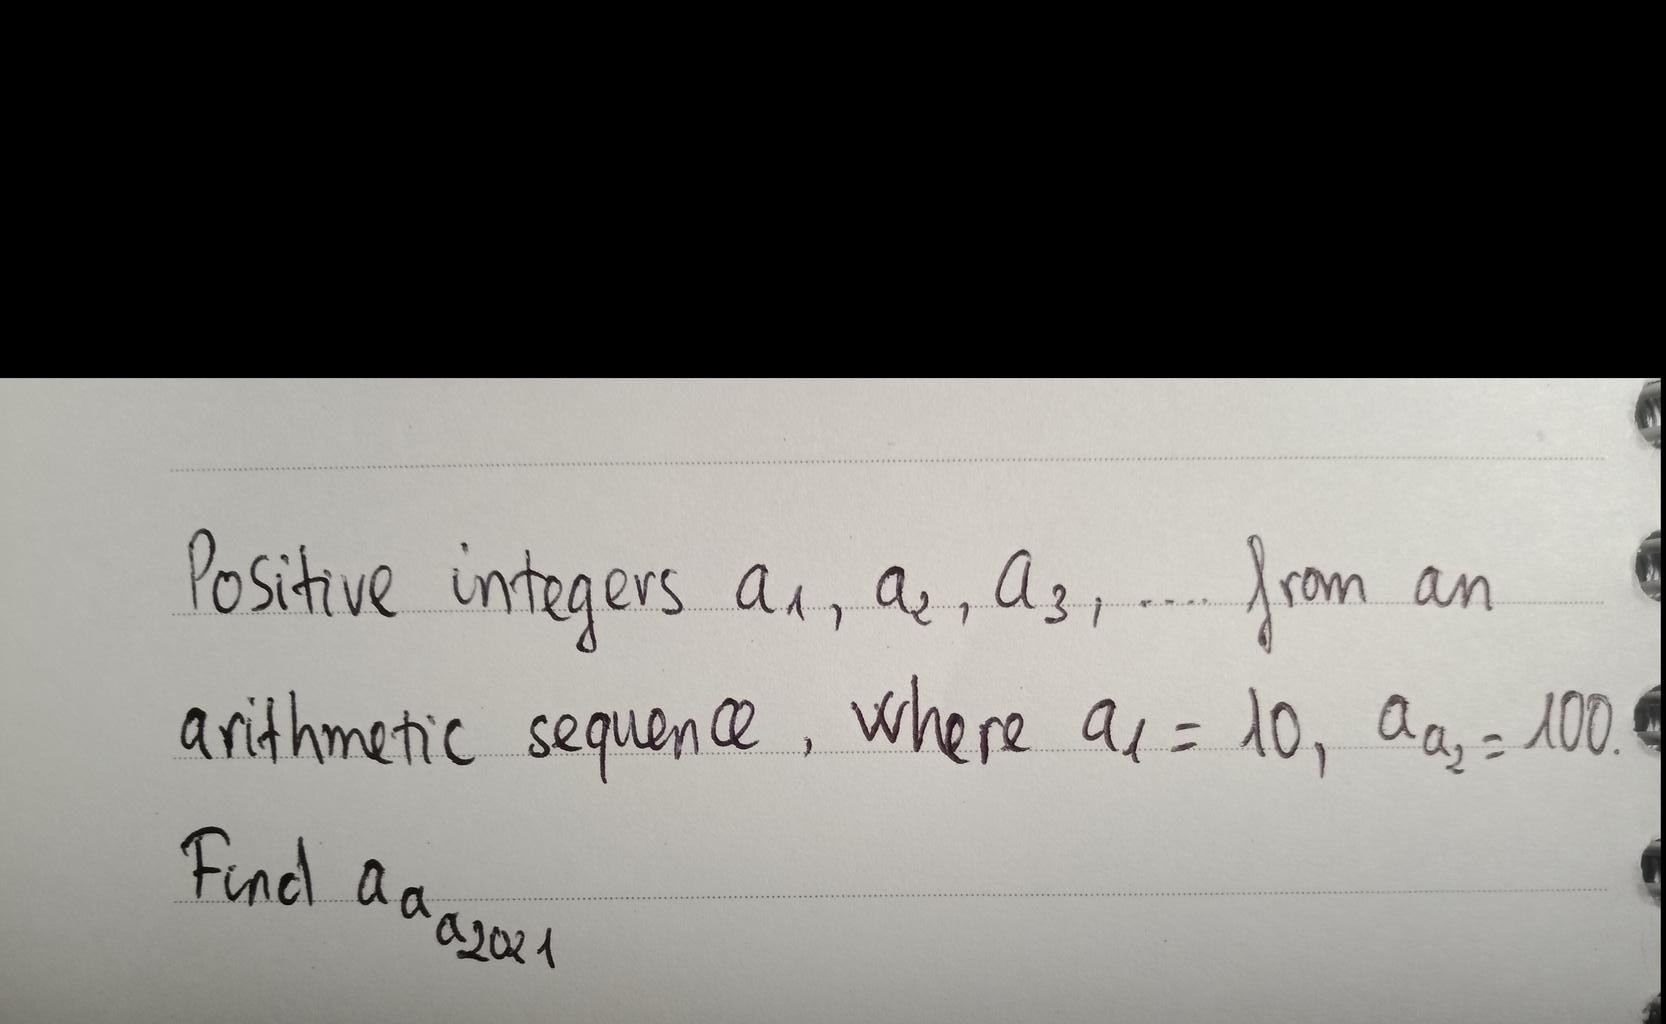 Positive integers a₁, a₂, a₃, .... from an
arithmetic sequence, where a₁ = 10, a_{a₂} = 100.
Find a_{a_{a_{2021}}}